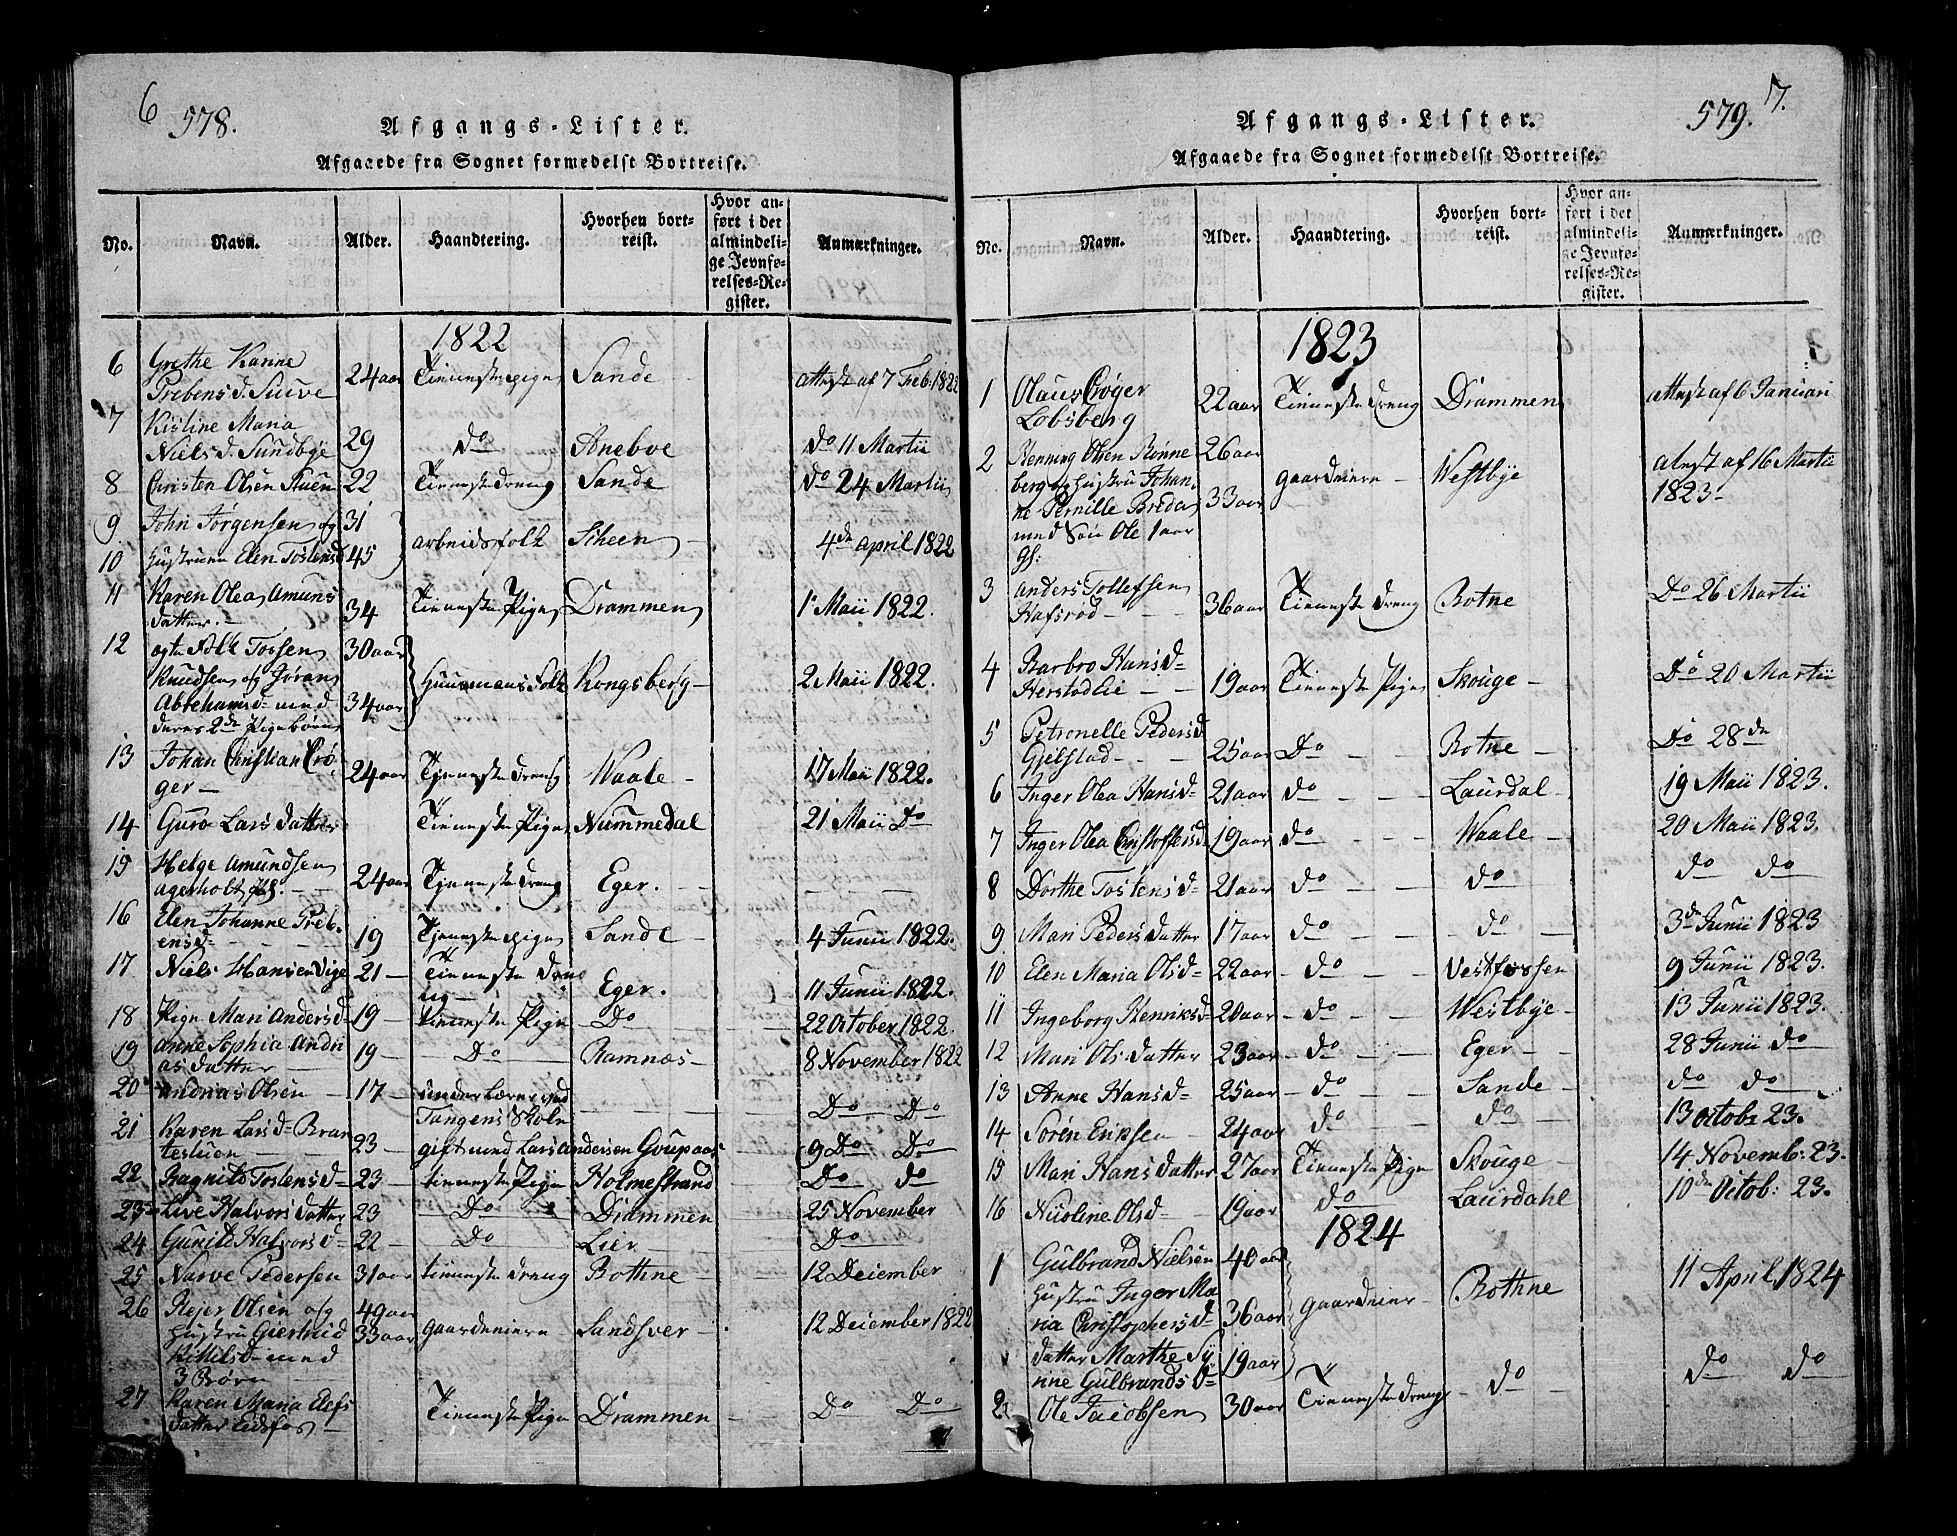 6 578.
Afgangs-Lister.
Afgaaede fra Sognet formedelst Bortreise.
No. Navn. Alder. Haandtering. Hvorhen bortreist. Hvor anført i det almindelige Jevnførelses-Register. Anmærkninger.
1822
6 Grethe Kanne
Prebens d. 24 aar Tienneste pige Sande Attest af 7 Feb. 1822
7 Kistine Maria
Niels d. Sundbye 29 do Aneboe do 11 Martii
8 Christen Olsen 22 Tieneste dreng Sande do 24 Martii
9 John Jørgensen og 31
arbeidsfolk Scheen 4de April 1822
10 Hustruen Elen Tostensd 45
11 Karen Olea Amuns
datter. 34 Tienneste Pige Drammen 1 Maii 1822.
12 egte Folk Tossen 30 aar
Knudsen og Jøran Huusmans Folk Kongsberg 2 Maii 1822.
Abrehamsd med 34 aar
deres 2de Pige børn
13 Johan Christian Crø
ger 24 aar Tjenneste dreng Waale 17 Maii 1822.
14 Guro Lars datter Tienneste Pige Nummedal 21 Maii Do
15 Helge Amundsen
agerholt 24 aar Tjenneste dreng Eger.
16 Elen Johanne Preb-
ensd 19 Tjenneste pige Sande 4 Junii 1822.
17 Niels Hansen Vige 21 Tienneste dren
ng Eger. 11 Junii 1822.
18 Pige Mari Andersd 19 tienneste Pige Do 22 October 1822.
19 Anne Sophia Andri
as datter 19 Do Ramnæs 8 November 1822
20 Andrias Olsen 17 under Lærer ved
Tangens Skole Do Do
21 Karen Larsd Bran
testuen 23 gift med Lars Andersen 9 Do Do
22 Ragnild Tostensd 23 tienneste Pige Holmestrand Do do
23 Live Halvors datter 23 Do Drammen 25 November
24 Gunild Halvorsd 22 Do Lier Do
25 Narve Pedersen 31 aar tienneste dreng Bothne 12 December
26 Rejer Olsen og 49 aar
Hustru Giertrud 33 aar gaardeiere Sandsver 12 December 1822
Kittilsd med
3 Børn
27 Karen Maria Elefs
datter Eidsfos Tienneste Pige Drammen Do Do
579. 7.
Afgangs-Lister.
Afgaaede fra Sognet formedelst Bortreise.
No. Navn. Alder. Haandtering. Hvorhen bortreist. Hvor anført i det almindelige Jevnførelses-Register. Anmærkninger.
1823
1 Olaus Crøger
Lobsberg 22 aar Tienneste dreng Drammen attest af 6 Januari
2 Henning Olsen Rønne 26 aar
berg og Hustru Johan- gaardeiere Westbye attest af 16 Martii
ne Pernille Breda 33 aar 1823
med Søn Ole 1 aar
gl:
3 Anders Tollefsen
Hafsrød 36 aar Tienneste dreng Botne Do 26 Martii
4 Barbro Hansd
Herstadlie 19 aar Tienneste Pige Skouge Do 20 Martii
5 Petronelle Pedersd
Gjelstad 25 aar Do Botne Do 28de
6 Inger Olea Hansd 21 aar do Laurdal 19 Maii 1823.
7 Inger Olea Christoffersd 19 aar do Waale 20 Maii 1823.
8 Dorthe Tostensd 21 aar do do do do
9 Mari Peders datter 17 aar do do 3de Junii 1823
10 Elen Maria Olsd 22 aar do Vestfossen 9 Junii 1823.
11 Ingeborg Henriksd 20 aar do Westbye 13 Junii 1823.
12 Mari Ols datter 23 aar do Eger 28 Junii do
13 Anne Hansd 25 aar do Sande do do
14 Søren Eriksen 24 aar do do 13 Octob: 23.
15 Mari Hans datter 27 aar Tienneste Pige Skouge 14 Novemb: 23.
16 Nicoline Olsd 19 aar do Laurdahl 10de Octob: 23.
1824
1 Gulbrand Nielsen 40 aar
Hustru Inger Ma
ria Christophersd 36 aar gaardeier Bothne 11 April 1824
datter Marthe Sy 19 aar
nne Gulbrandsd
2 Ole Jacobsen 30 aar Tienneste dreng do do do